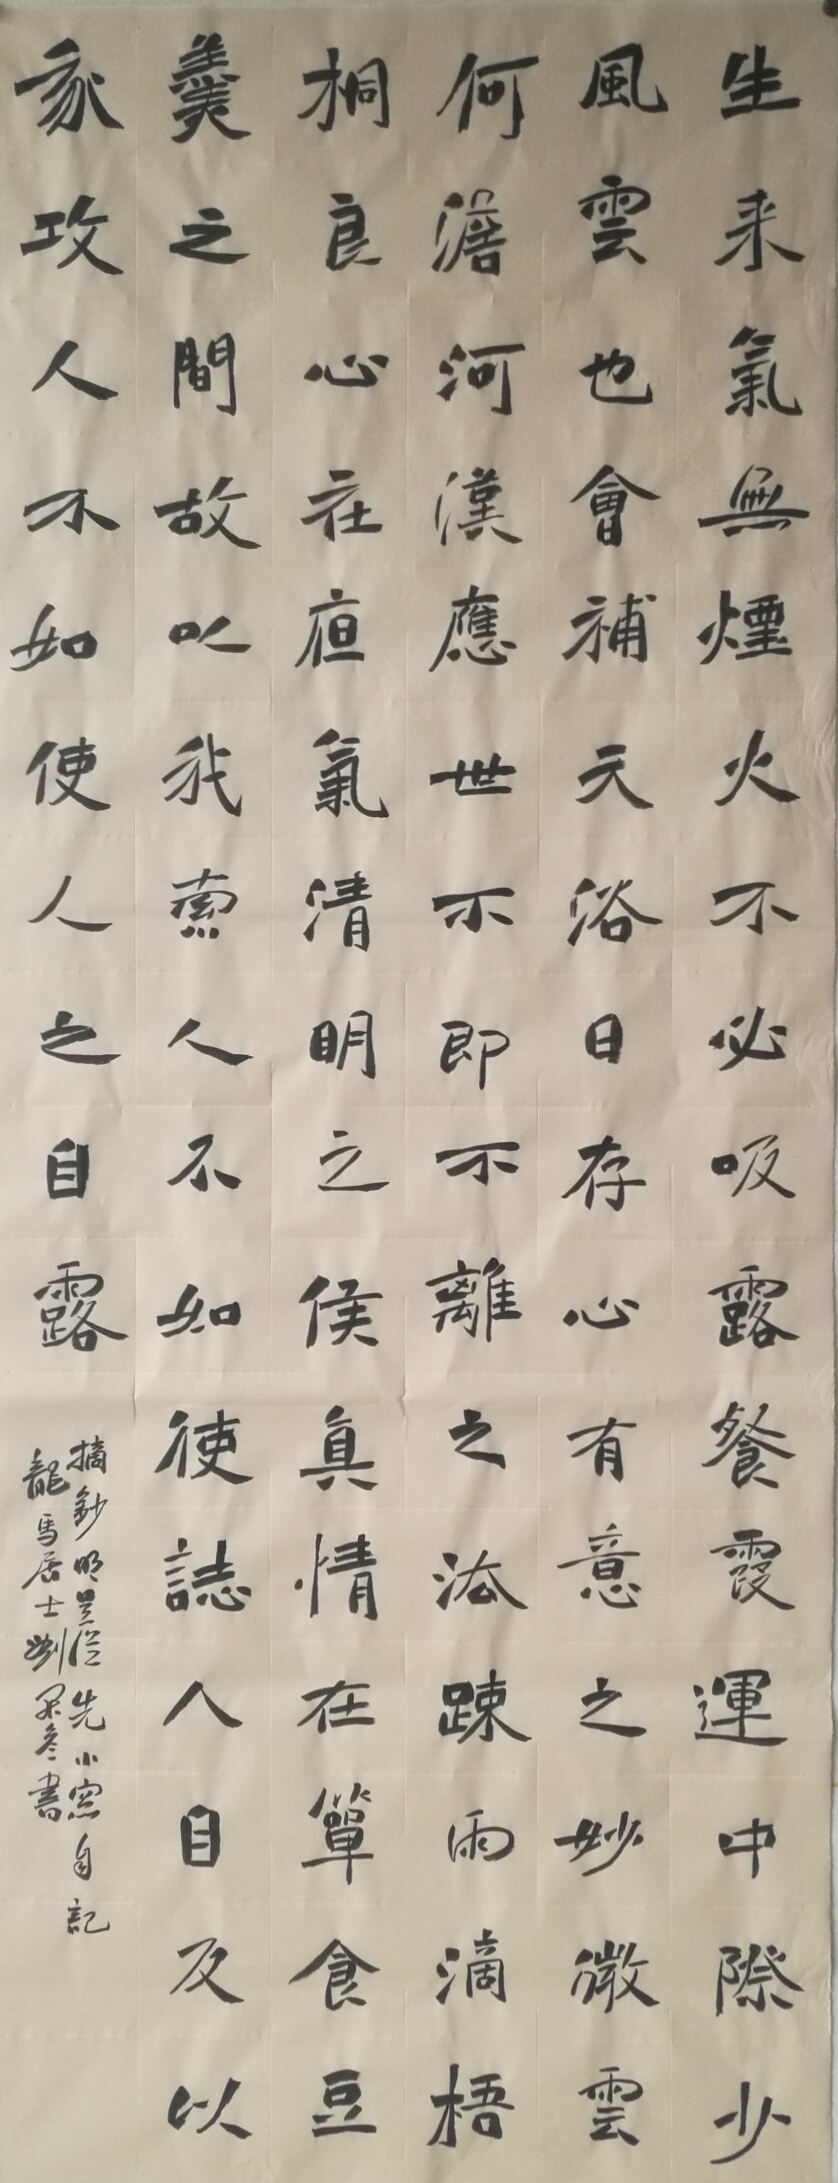 生来氣無煙火不必吸露餐霞運中際少
風雲也會補天浴日存心有意之妙微雲
何澹河漢應世不即不離之法踈雨滴梧
桐良心在夜氣清明之候真情在簞食豆
羹之間故以我索人不如使誌人自反以
我攻人不如使人之自露
摘鈔明吳從先小窓自記
龍馬居士劉書